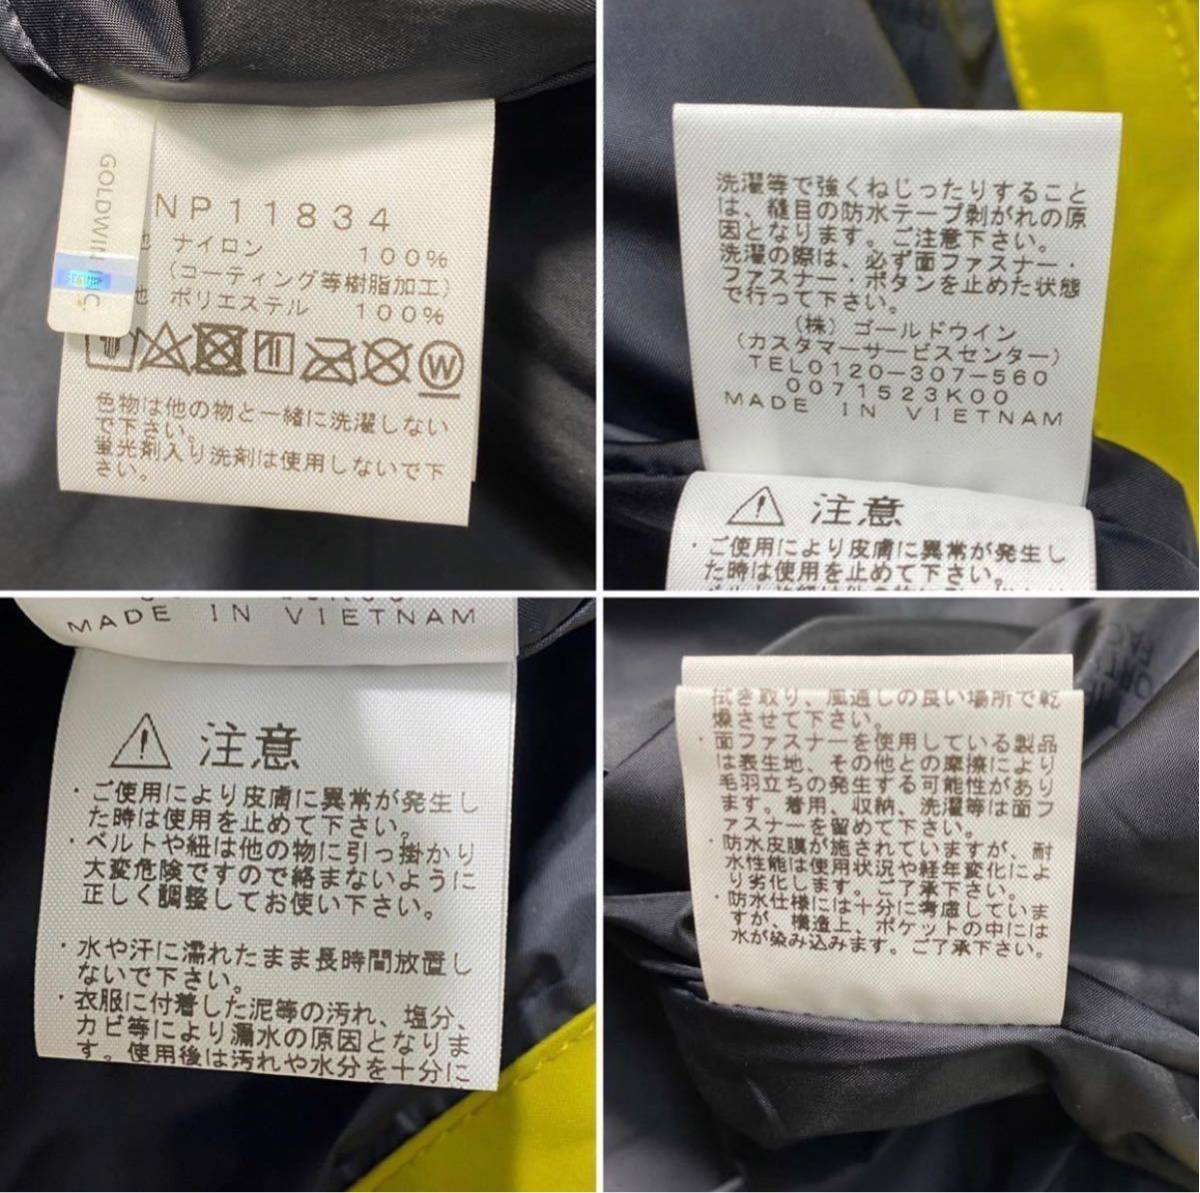 GOLDWIN INC.
NP11834
地 ナイロン 100%
(コーティング等樹脂加工)
地 ポリエステル 100%
W
色物は他の物と一緒に洗濯しない
で下さい。
蛍光剤入り洗剤は使用しないで下
さい。
洗濯等で強くねじったりすること
は、縫目の防水テープ剥がれの原
因となります。ご注意下さい。
洗濯の際は、必ず面ファスナー・
ファスナー・ボタンを止めた状態
で行って下さい。
(株)ゴールドウイン
(カスタマーサービスセンター)
TEL0120-307-560
0071523K00
MADE IN VIETNAM
注意
・ご使用により皮膚に異常が発生し
た時は使用を止めて下さい。
MADE IN VIETNAM
注意
・ご使用により皮膚に異常が発生し
た時は使用を止めて下さい。
・ベルトや紐は他の物に引っ掛かり
大変危険ですので絡まないように
正しく調整してお使い下さい。
・水や汗に濡れたまま長時間放置し
ないで下さい。
・衣服に付着した泥等の汚れ、塩分、
カビ等により漏水の原因となりま
す。使用後は汚れや水分を十分に
拭き取り、風通しの良い場所で乾
燥させて下さい。
・面ファスナーを使用している製品
は表生地、その他との摩擦により
毛羽立ちの発生する可能性があり
ます。着用、収納、洗濯等は面フ
ァスナーを留めて下さい。
・防水皮膜が施されていますが、耐
水性能は使用状況や経年変化によ
り劣化します。ご了承下さい。
・防水仕様には十分に考慮していま
すが、構造上、ポケットの中には
水が染み込みます。ご了承下さい。